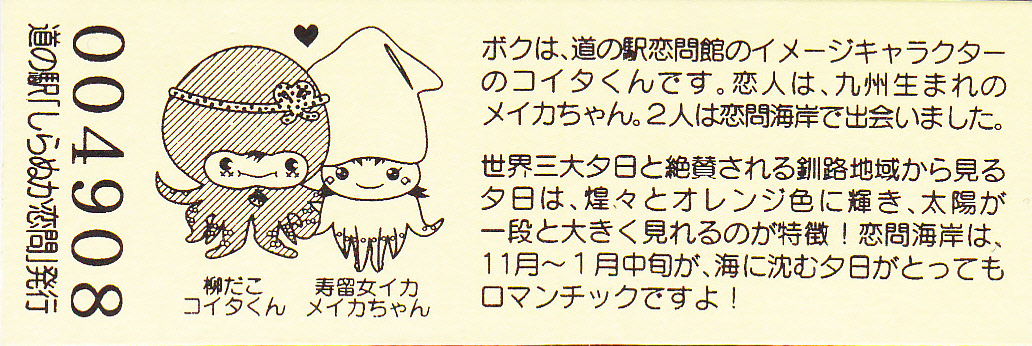 004908
道の駅「しらぬか恋問」発行
柳だこ
コイタくん
寿留女イカ
メイカちゃん
ボクは、道の駅恋問館のイメージキャラクター
のコイタくんです。恋人は、九州生まれの
メイカちゃん。2人は恋問海岸で出会いました。
世界三大夕日と絶賛される釧路地域から見る
夕日は、煌々とオレンジ色に輝き、太陽が
一段と大きく見れるのが特徴！恋問海岸は、
11月～1月中旬が、海に沈む夕日がとっても
ロマンチックですよ！